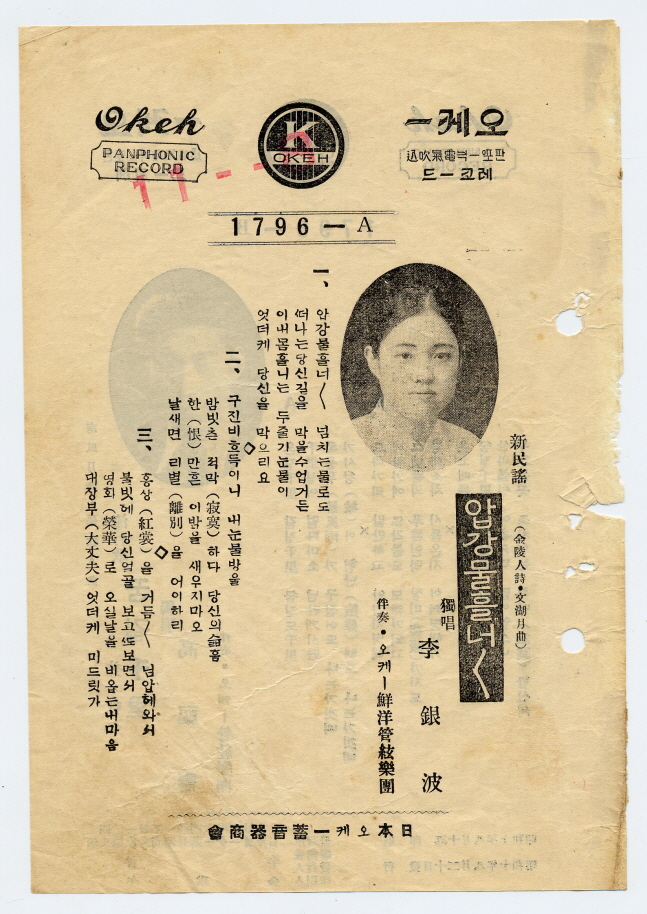 Okeh
PANPHONIC
RECORD
K
OKEH
오케ー
레코ード
1796 — A
新民謠
압강물흘너〱
(金陵人詩・文湖月曲)
獨唱 李銀波
伴奏・오케ー鮮洋管絃樂團
一、
압강물흘너〱 넘치는물로도
떠나는당신길을 막을수업거든
이내몸흘니는 두줄기눈물이
엇더케 당신을 막으리요
◇
二、
구진비흐득이니 내눈물방울
밤빗츤 적막(寂寞)하다 당신의슯흠
한(恨)만흔 이밤을 새우지마오
날새면 리별(離別)을 어이하리
◇
三、
홍상(紅裳)을 거듬〱 님압헤와서
불빗에 당신얼골 보고또보면서
영화(榮華)로 오실날을 비옵는내마음
대장부(大丈夫) 엇더케 미드릿가
日本오케ー蓄音器商會